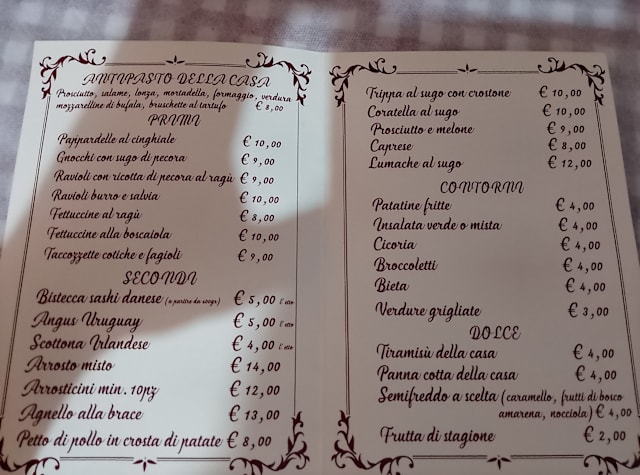 ANTIPASTO DELLA CASA
Prosciutto, salame, lonza, mortadella, formaggio, verdura
mozzarelline di bufala, bruschette al tartufo € 8,00
PRIMI
Pappardelle al cinghiale € 10,00
Gnocchi con sugo di pecora € 9,00
Ravioli con ricotta di pecora al ragù € 9,00
Ravioli burro e salvia € 10,00
Fettuccine al ragù € 8,00
Fettuccine alla boscaiola € 10,00
Taccozzette cotiche e fagioli € 9,00
SECONDI
Bistecca sashi danese (a partire da 500gr) € 5,00 l'etto
Angus Uruguay € 5,00 l'etto
Scottona Irlandese € 4,00 l'etto
Arrosto misto € 14,00
Arrosticini min. 10pz € 12,00
Agnello alla brace € 13,00
Petto di pollo in crosta di patate € 8,00
Trippa al sugo con crostone € 10,00
Coratella al sugo € 10,00
Prosciutto e melone € 9,00
Caprese € 8,00
Lumache al sugo € 12,00
CONTORNI
Patatine fritte € 4,00
Insalata verde o mista € 4,00
Cicoria € 4,00
Broccoletti € 4,00
Bieta € 4,00
Verdure grigliate € 3,00
DOLCE
Tiramisù della casa € 4,00
Panna cotta della casa € 4,00
Semifreddo a scelta (caramello, frutti di bosco
amarena, nocciola) € 4,00
Frutta di stagione € 2,00